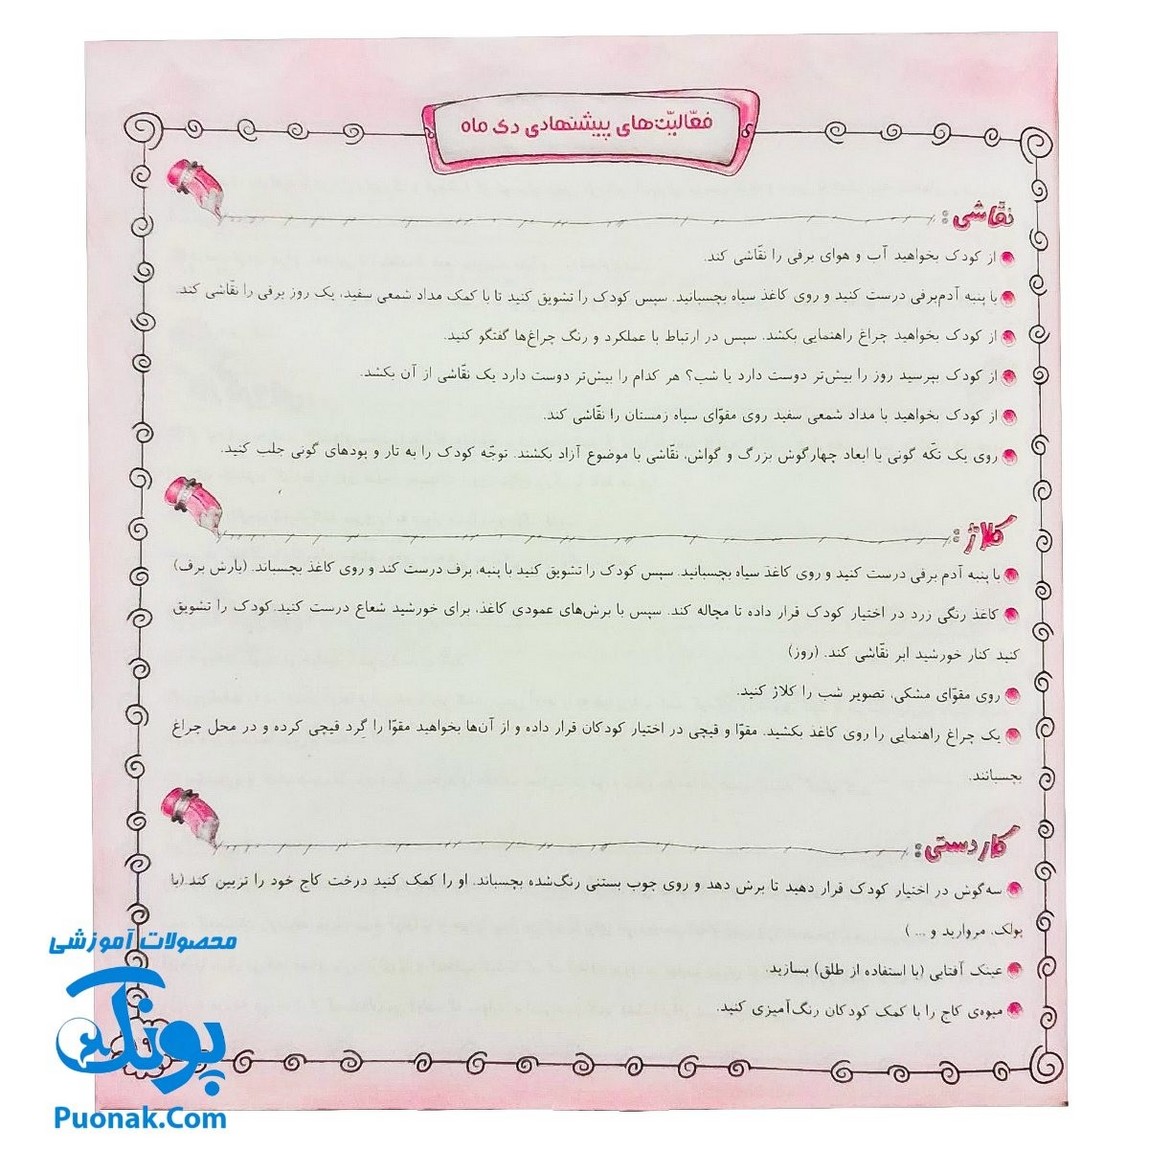 فعّالیّت‌های پیشنهادی دی ماه
نقّاشی:
از کودک بخواهید آب و هوای برفی را نقّاشی کند.
با پنبه آدم‌برفی درست کنید و روی کاغذ سیاه بچسبانید. سپس کودک را تشویق کنید تا با کمک مداد شمعی سفید، یک روز برفی را نقّاشی کند.
از کودک بخواهید چراغ راهنمایی بکشد. سپس در ارتباط با عملکرد و رنگ چراغ‌ها گفتگو کنید.
از کودک بپرسید روز را بیش‌تر دوست دارد یا شب؟ هر کدام را بیش‌تر دوست دارد یک نقّاشی از آن بکشد.
از کودک بخواهید با مداد شمعی سفید روی مقوّای سیاه زمستان را نقّاشی کند.
روی یک تکّه گونی با ابعاد چهارگوش بزرگ و گواش، نقّاشی با موضوع آزاد بکشند. توجّه کودک را به تار و پودهای گونی جلب کنید.
کلاژ:
با پنبه آدم برفی درست کنید و روی کاغذ سیاه بچسبانید. سپس کودک را تشویق کنید با پنبه، برف درست کند و روی کاغذ بچسباند. (بارش برف)
کاغذ رنگی زرد در اختیار کودک قرار داده تا مچاله کند. سپس با برش‌های عمودی کاغذ، برای خورشید شعاع درست کنید.کودک را تشویق
کنید کنار خورشید ابر نقّاشی کند. (روز)
روی مقوّای مشکی، تصویر شب را کلاژ کنید.
یک چراغ راهنمایی را روی کاغذ بکشید. مقوّا و قیچی در اختیار کودکان قرار داده و از آن‌ها بخواهید مقوّا را گِرد قیچی کرده و در محل چراغ
بچسبانند.
کاردستی:
سه‌گوش در اختیار کودک قرار دهید تا برش دهد و روی چوب بستنی رنگ‌شده بچسباند. او را کمک کنید درخت کاج خود را تزیین کند.(با
پولک، مروارید و ... )
عینک آفتابی (با استفاده از طلق) بسازید.
میوه‌ی کاج را با کمک کودکان رنگ‌آمیزی کنید.
محصولات آموزشی
پونک
Puonak.Com